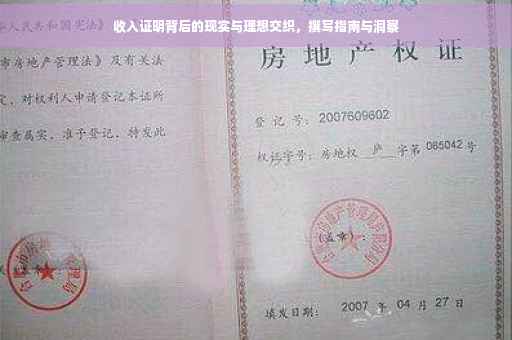 收入证明背后的现实与理想交织，撰写指南与洞察
人民共和国宪法》
市房地产管理法》及有关法
定，对权利人申请登记本证所
审查属实，准予登记，特发此
房地产权证
登记号：2007609602
权证字号：房地权 庐 字第 085042 号
(盖章)：
填发日期： 2007 年 04 月 27 日